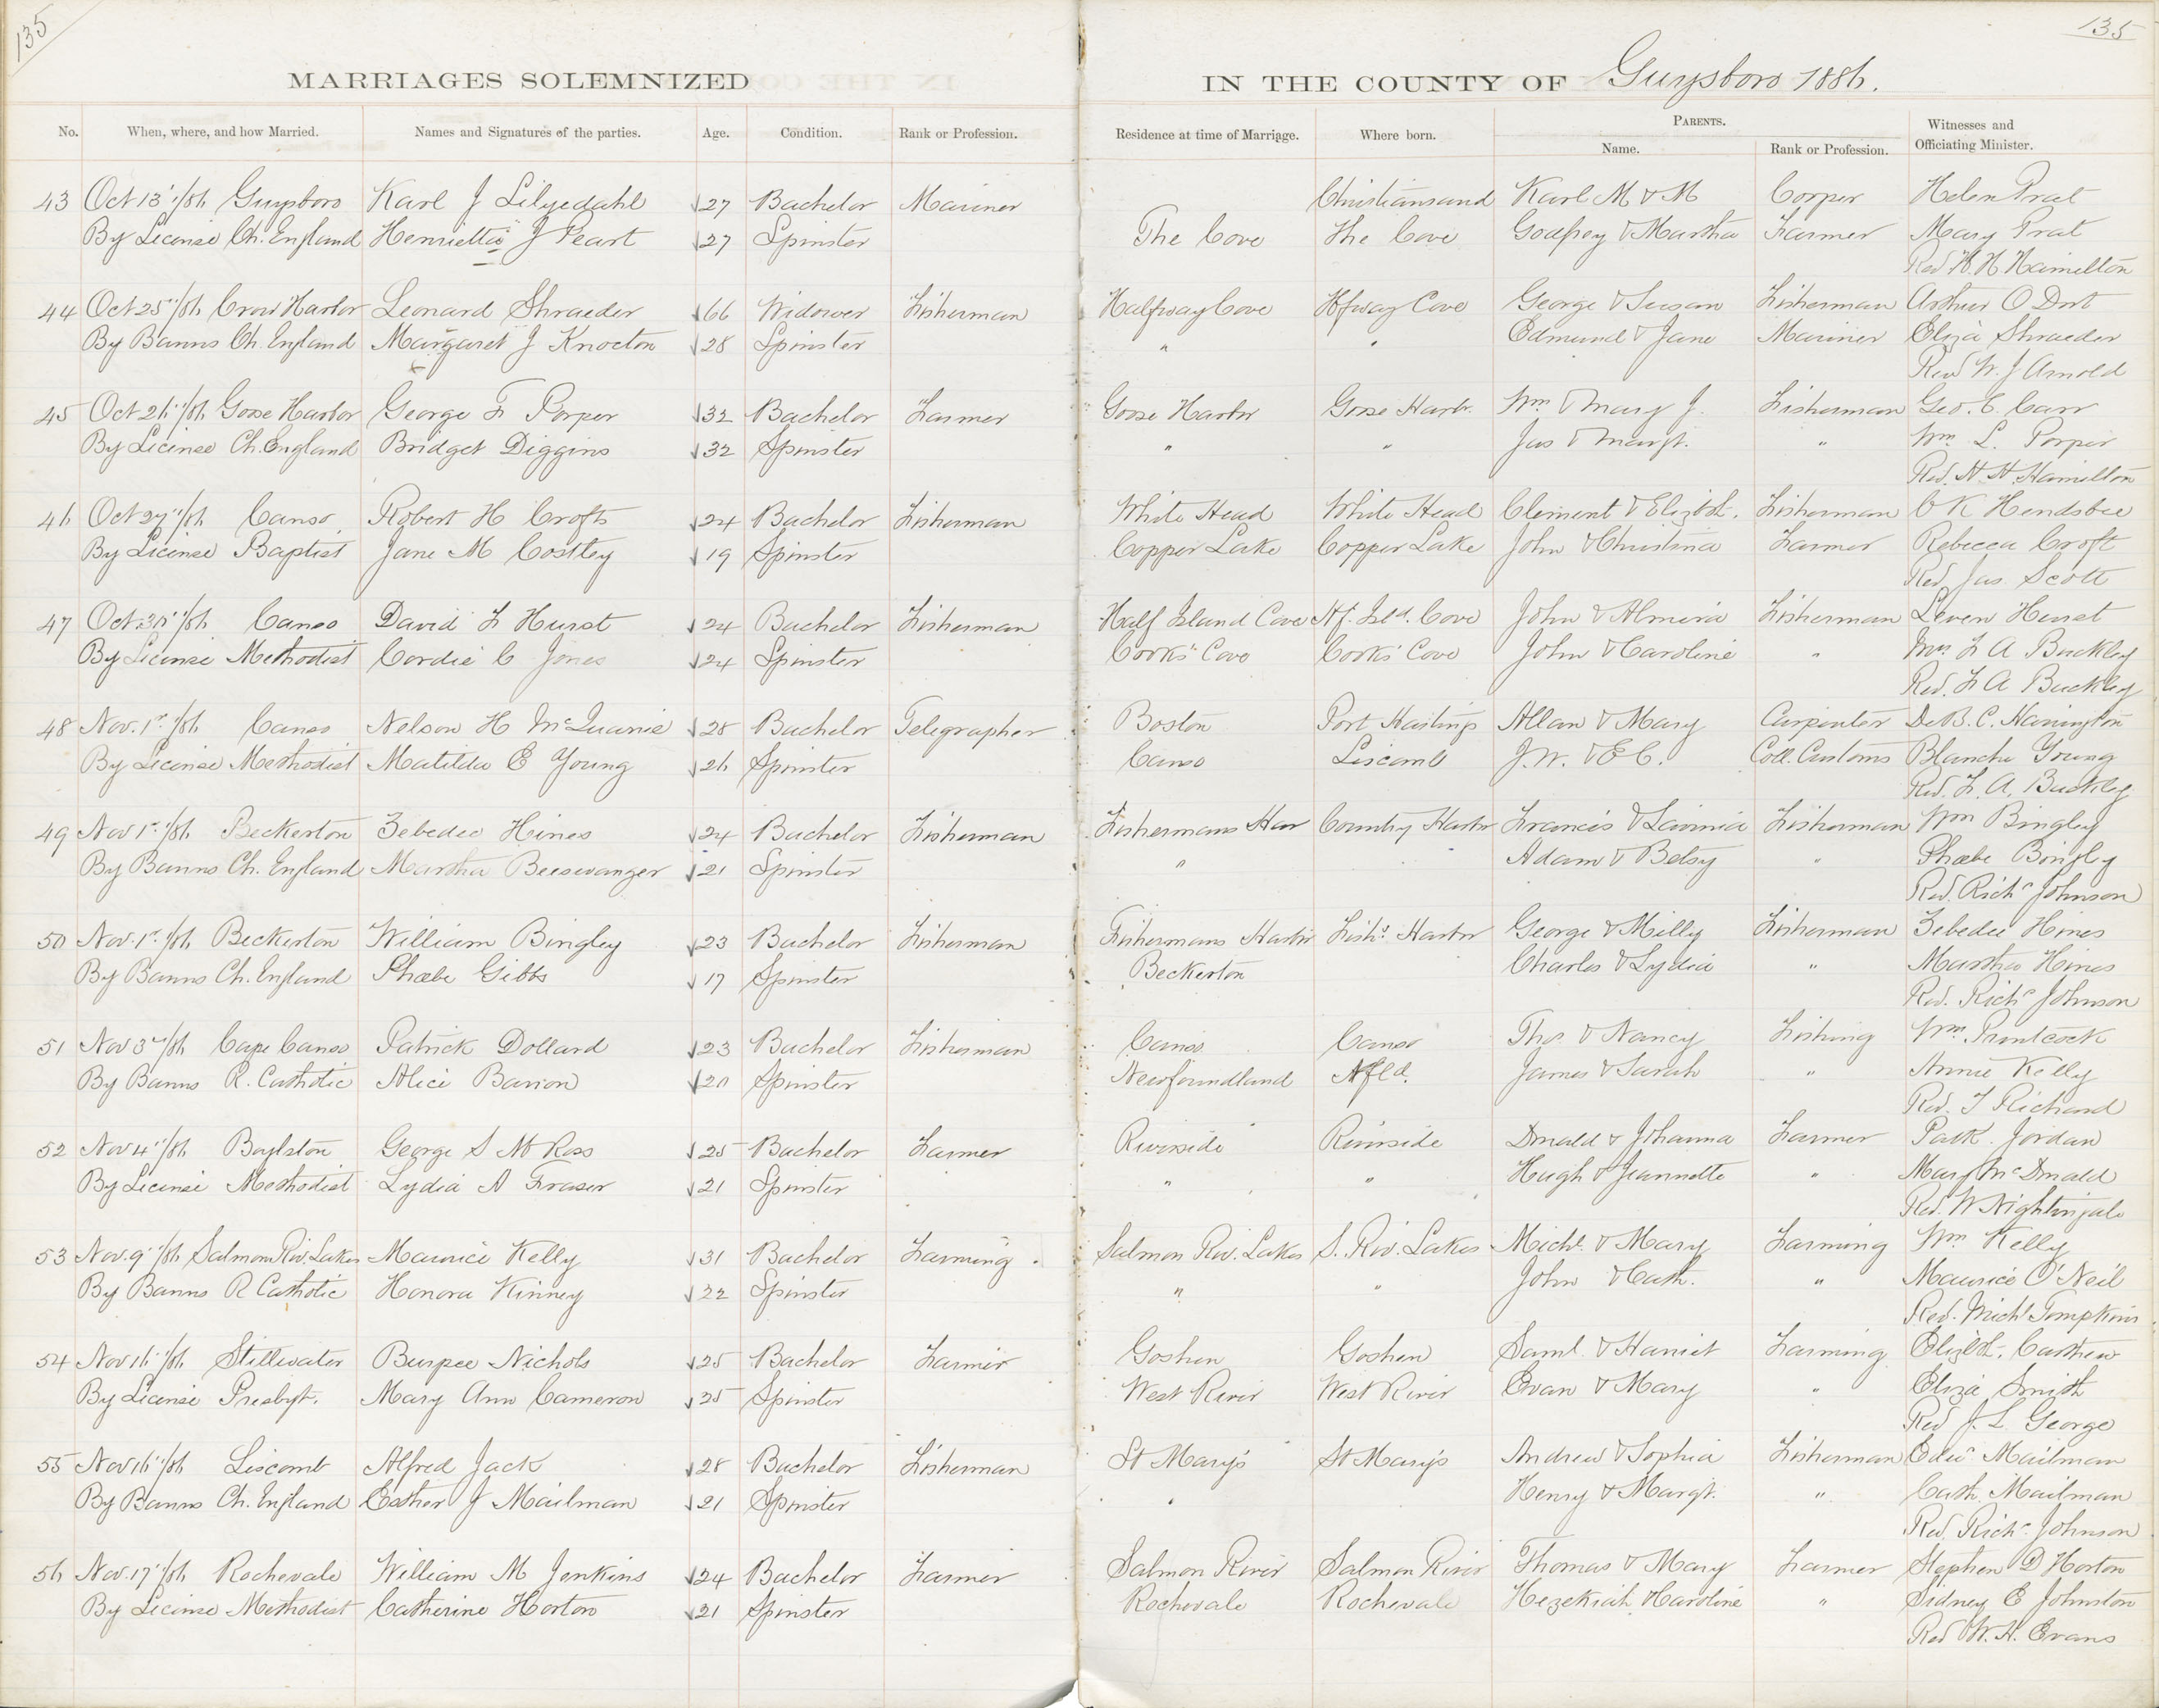 135
135
MARRIAGES SOLEMNIZED IN THE COUNTY OF Guysboro 1886.
No. When, where, and how Married. Names and Signatures of the parties. Age. Condition. Rank or Profession. Residence at time of Marriage. Where born. PARENTS. Name. Rank or Profession. Witnesses and Officiating Minister.
43 Oct 13"/86 Guysboro Karl J Lilyedahl 27 Bachelor Mariner Christiansand Karl M & M Corper Helen Prat
By License Ch. England Henrietta J Peart 27 Spinster The Cove The Cove Godfrey & Martha Farmer Mary Prat
Rev H. H Hamilton
44 Oct 25"/86 Crow Harbor Leonard Shraeder 66 Widower Fisherman Halfway Cove Hfway Cove George & Susan Fisherman Arthur O Dort
By Banns Ch. England Margaret J Knocton 28 Spinster " " Edmund & Jane Mariner Eliza Shraeder
Rev W. J Arnold
45 Oct 26"/86 Goose Harbor George F Porper 32 Bachelor Farmer Goose Harbor Goose Harbr. Wm & Mary J. Fisherman Geo. C. Carr
By License Ch. England Bridget Diggins 32 Spinster " " Jas & Margt. " Wm L. Porper
Rev. H. H. Hamilton
46 Oct 27"/86 Canso Robert H Crofts 24 Bachelor Fisherman White Head White Head Clement & Elizbth. Fisherman O K Hendsbee
By License Baptist Jane M Costley 19 Spinster Copper Lake Copper Lake John & Christina Farmer Rebecca Croft
Rev Jas Scott
47 Oct 30"/86 Canso David F Hurst 24 Bachelor Fisherman Half Island Cove Hf. Isld. Cove John & Almira Fisherman Leven Hurst
By License Methodist Cordie C Jones 24 Spinster Cooks Cove Cooks Cove John & Caroline " Mrs F A Buckley
Rev. F A Buckley
48 Nov. 1st/86 Canso Nelson H McQuarrie 28 Bachelor Telegrapher Boston Port Hastings Allan & Mary Carpenter De B. C. Harrington
By License Methodist Matilda E Young 26 Spinster Canso Liscomb J. W. & E C. Coll. Customs Blanche Young
Rev. F. A. Buckley
49 Nov 1st/86 Beckerton Zebedee Hines 24 Bachelor Fisherman Fishermans Har Country Harbr Francis & Lavinia Fisherman Wm Bingley
By Banns Ch. England Martha Beeswanger 21 Spinster " Adam & Betsy " Phœbe Bingley
Rev. Richd Johnson
50 Nov. 1st/86 Beckerton William Bingley 23 Bachelor Fisherman Fishermans Harbr Fishs Harbr George & Milly Fisherman Zebedee Hines
By Banns Ch. England Phœbe Gibbs 17 Spinster Beckerton Charles & Lydia " Martha Hines
Rev. Richd Johnson
51 Nov 3rd/86 Cape Canso Patrick Dollard 23 Bachelor Fisherman Canso Canso Thos & Nancy Fishing Wm
By Banns R. Catholic Alice Barron 20 Spinster Newfoundland Nfld. James & Sarah " Annie Kelly
Rev. T Richard
52 Nov 4"/86 Boylston George S McRoss 25 Bachelor Farmer Riverside Riverside Donald & Johanna Farmer Patk. Jordan
By License Methodist Lydia A Fraser 21 Spinster " " Hugh & Jeannette " Mary McDonald
Rev. W Nightingale
53 Nov. 9"/86 Salmon Riv. Lakes Maurice Kelly 31 Bachelor Farming Salmon Riv. Lakes S. Riv. Lakes Michl. & Mary Farming Wm Kelly
By Banns R Catholic Honora Kinney 22 Spinster " " John & Cath. " Maurice O'Neil
Rev. Michl Tompkins
54 Nov 16"/86 Stillwater Burpee Nichols 25 Bachelor Farmer Goshen Goshen Saml. & Harriet Farming Elizbth. Carthew
By License Presbyt. Mary Ann Cameron 25 Spinster West River West River Evan & Mary " Eliza Smith
Rev J. L George
55 Nov 16"/86 Liscomb Alfred Jack 28 Bachelor Fisherman St Mary's St Mary's Andrew & Sophia Fisherman Edwd Mailman
By Banns Ch. England Esther J Mailman 21 Spinster " Henry & Margt. " Cath. Mailman
Rev. Richd. Johnson
56 Nov. 17"/86 Rochevale William M Jenkins 24 Bachelor Farmer Salmon River Salmon River Thomas & Mary Farmer Stephen D Horton
By License Methodist Catherine Horton 21 Spinster Rochevale Rochevale Hezekiah Caroline " Sidney E Johnston
Rev W. H. Evans